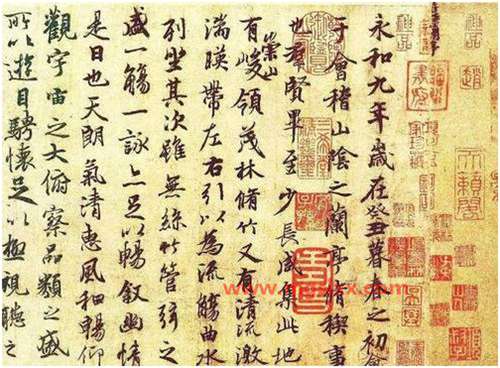 天籟閣
永和九年歲在癸丑暮春之初會
于會稽山陰之蘭亭脩稧事
也羣賢畢至少長咸集此地
有崇山峻領茂林脩竹又有清流激
湍暎帶左右引以為流觴曲水
列坐其次雖無絲竹管弦之
盛一觴一詠亦足以暢敘幽情
是日也天朗氣清惠風和暢仰
觀宇宙之大俯察品類之盛
所以遊目騁懷足以極視聽之